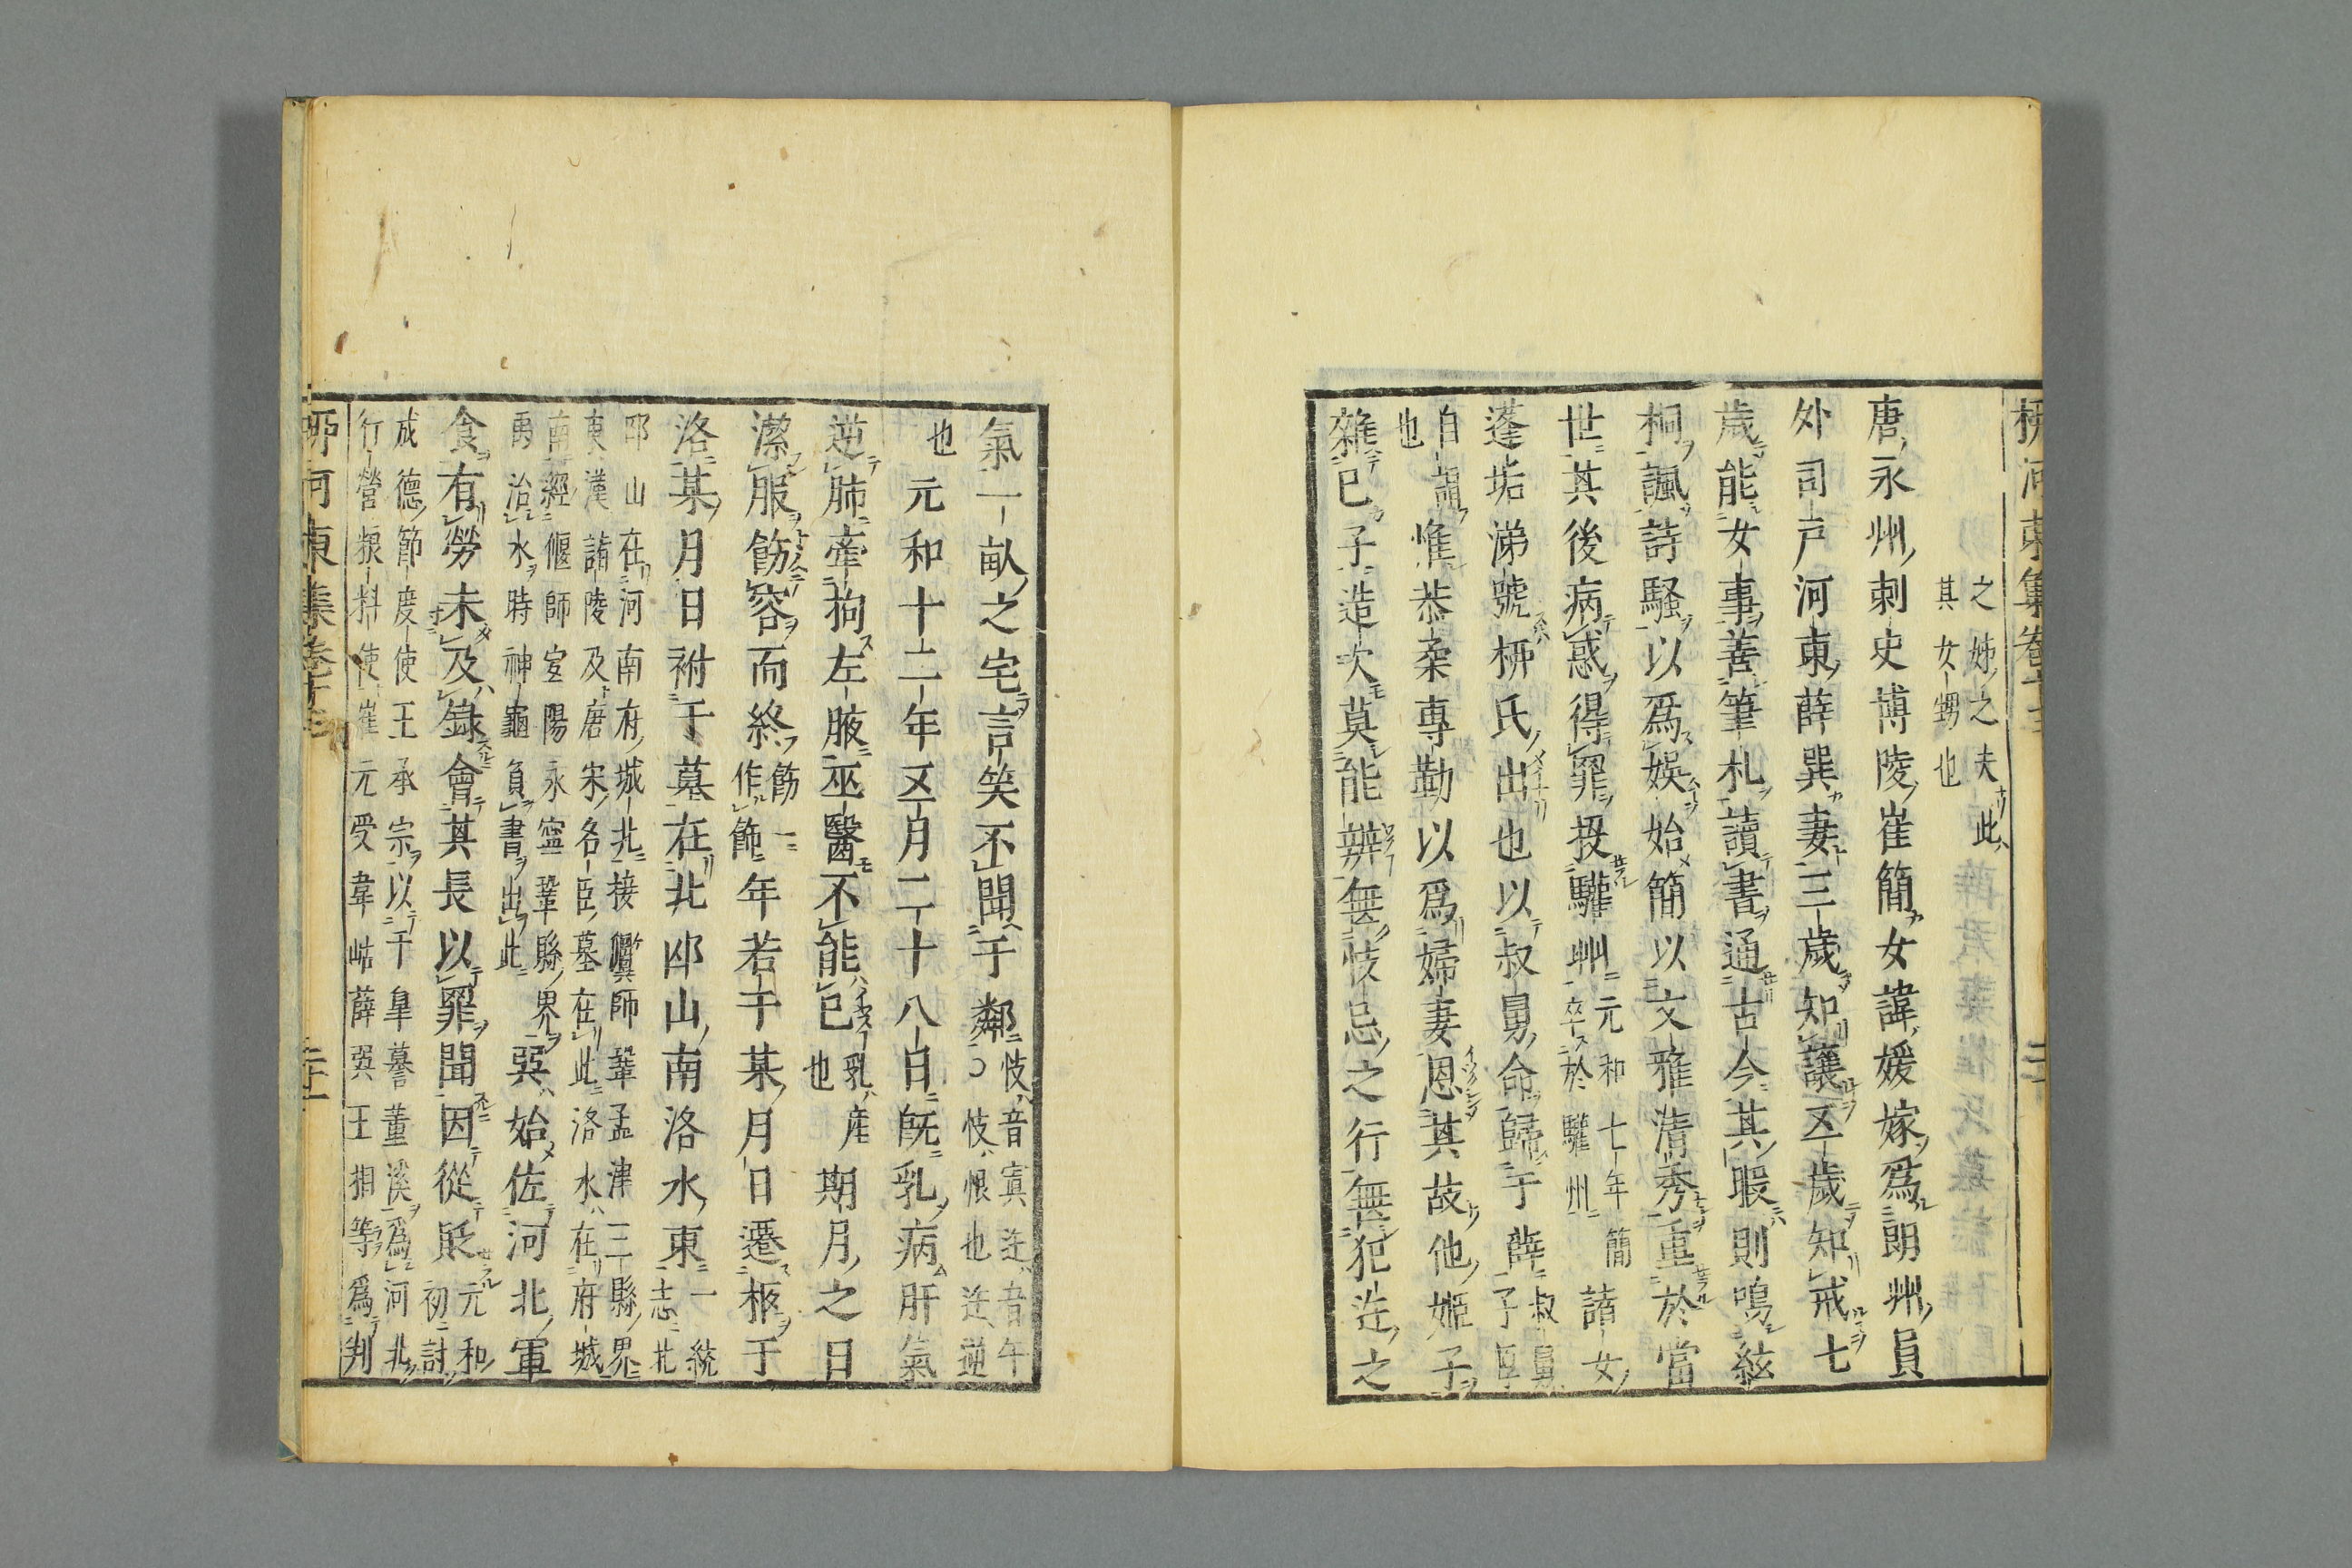 柳河東集卷十三 二十
之姊之夫此
其女甥也
唐永州刺史博陵崔簡女諱媛嫁爲朗州員
外司戶河東薛巽妻三歲知讓五歲知戒七
歲能女事善筆札讀書通古今其暇則鳴絃
桐諷詩騷以爲娛始簡以文雅清秀重於當
世其後病惑得罪投驩州元和七年簡卒於驩州諸女
蓬垢涕號柳氏出也以叔舅命歸于薛叔舅子厚
自謂也惟恭柔專勤以爲婦妻恩其故他姬子
雜已子造次莫能辨無忮忌之行無犯迕之
氣一畝之宅言笑不聞于鄰忮音寘迕音午○忮恨也迕逆
也元和十二年五月二十八日既乳病肝氣
逆肺牽拘左腋巫醫不能已乳產也期月之日
潔服飭容而終飭一作飾年若干某月日遷柩于
洛某月日祔于墓在北邙山南洛水東一統志北
邙山在河南府城北接偃師鞏孟津三縣界
東漢諸陵及唐宋名臣墓在此洛水在府城
南經偃師宜陽永寧鞏縣界
禹治水時神龜負書出此巽始佐河北軍
食有勞未及錄會其長以罪聞因從貶元和初討
成德節度使王承宗以于皐謩董溪爲河北
行營粮料使崔元受韋岵薛巽王相等爲判
柳河東集卷十三 二十一